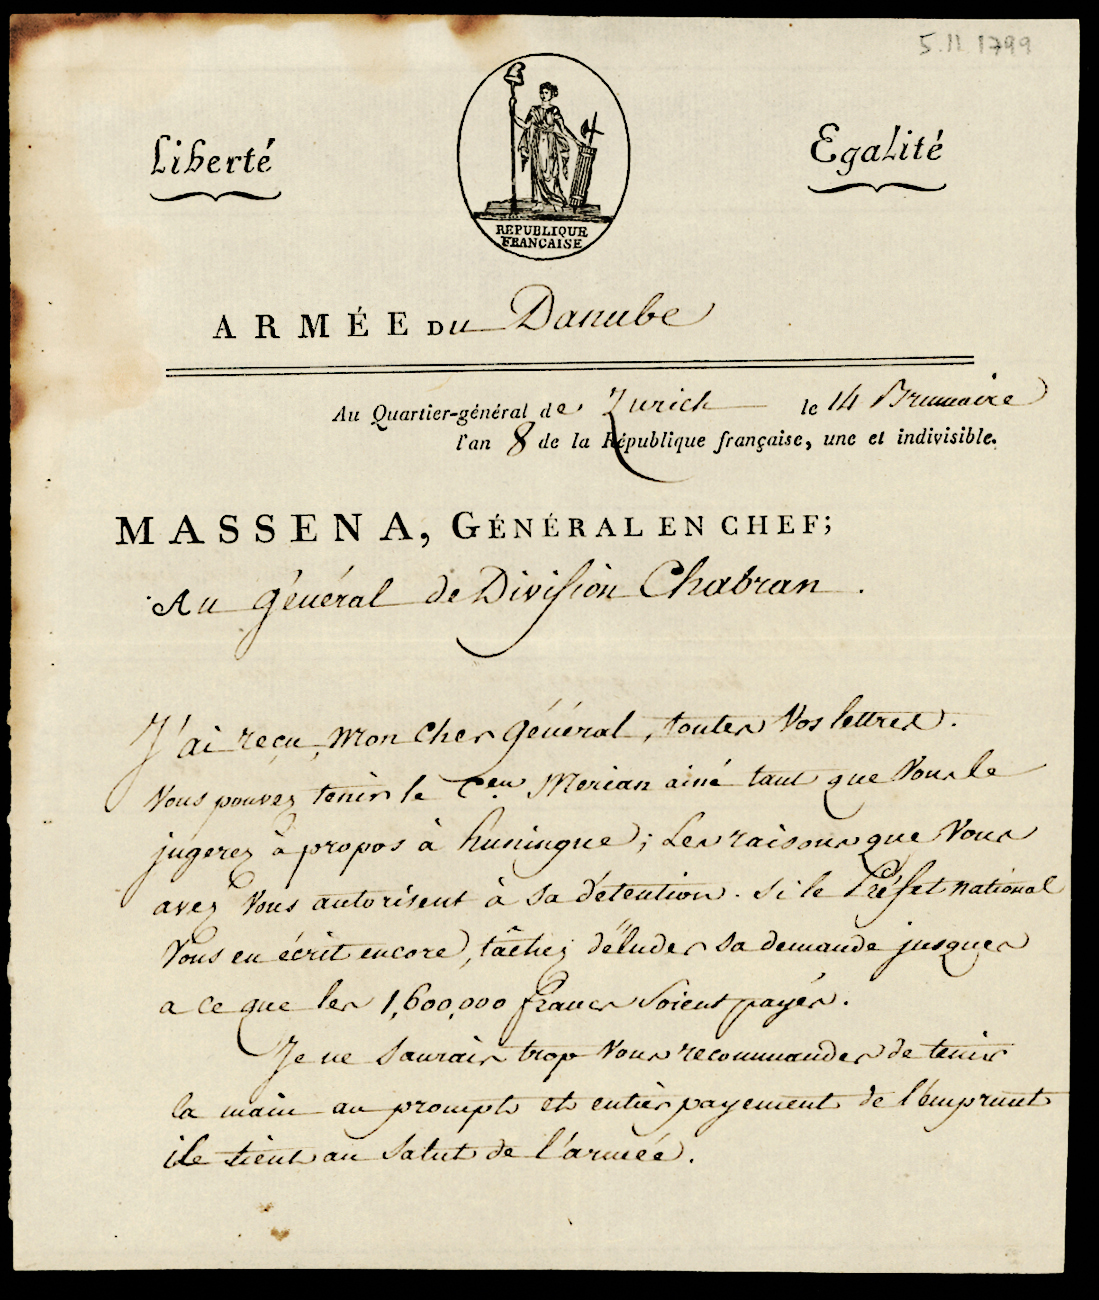 5.11.1799
Liberté
Egalité
REPUBLIQUE
FRANCAISE
ARMÉE DU Danube
Au Quartier-général de Zurich le 14 Brumaire
l'an 8 de la République française, une et indivisible.
MASSENA, GÉNÉRAL EN CHEF;
Au Général de Division Chabran.
J'ai reçu, mon cher Général, toutes vos lettres.
Vous pouvez tenir le Cen Merian ainé tant que vous le
jugerez à propos à huningue; Les raisons que vous
avez vous autorisent à sa détention. Si le Préfet national
vous en écrit encore, tâchez d'éluder sa demande jusques
a ce que les 1,600,000 francs soient payés.
Je ne saurais trop vous recommander de tenir
la main au prompt et entier payement de l'emprunt
il tient au salut de l'armée.